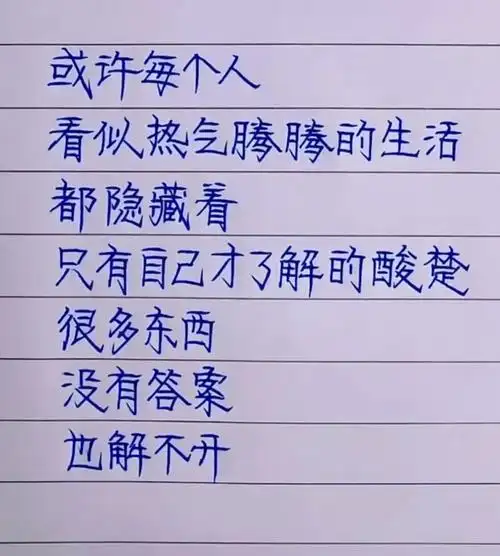 或许每个人
看似热气腾腾的生活
都隐藏着
只有自己才了解的酸楚
很多东西
没有答案
也解不开